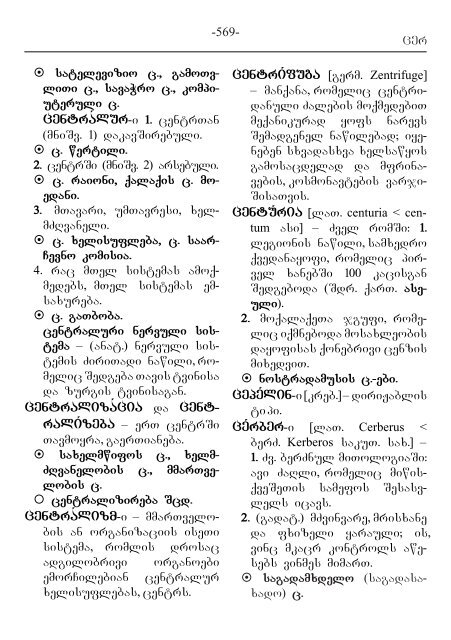 -569-
ცერ
⦿ სატელევიზიო ც., გამოთვ-
ლითი ც., სავაჭრო ც., კომპი-
უტერული ც.
ცენტრალურ-ი 1. ცენტრთან
(მნიშვ. 1) დაკავშირებული.
⦿ ც. წერტილი.
2. ცენტრში (მნიშვ. 2) არსებული.
⦿ ც. რაიონი, ქალაქის ც. მო-
ედანი.
3. მთავარი, უმთავრესი, ხელ-
მძღვანელი.
⦿ ც. ხელისუფლება, ც. საარ-
ჩევნო კომისია.
4. რაც მთელ სისტემას ამოქ-
მედებს, მთელ სისტემას ემ-
სახურება.
⦿ ც. გათბობა.
ცენტრალური ნერვული სის-
ტემა – (ანატ.) ნერვული სის-
ტემის ძირითადი ნაწილი, რო-
მელიც შედგება თავის ტვინისა
და ზურგის ტვინისაგან.
ცენტრალიზაცია და ცენტ-
რალიზება – ერთ ცენტრში
თავმოყრა, გაერთიანება.
⦿ სახელმწიფოს ც., ხელმ-
ძღვანელობის ც., მმართვე-
ლობის ც.
○ ცენტრალიზირება შცდ.
ცენტრალიზმ-ი – მმართველო-
ბის ან ორგანიზაციის ისეთი
სისტემა, რომლის დროსაც
ადგილობრივი ორგანოები
ემორჩილებიან ცენტრალურ
ხელისუფლებას, ცენტრს.
ცენტრიფუგა [გერმ. Zentrifuge]
– მანქანა, რომელიც ცენტრი-
დანული ძალების მოქმედებით
მექანიკურად ყოფს ნარევს
შემადგენელ ნაწილებად; იყე-
ნებენ სხვადასხვა ხელსაწყოს
გამოსაცდელად და მფრინა-
ვების, კოსმონავტების ვარჯი-
შისათვის.
ცენტურია [ლათ. centuria < cen-
tum ასი] – ძველ რომში: 1.
ლეგიონის ნაწილი, სამხედრო
ქვედანაყოფი, რომელიც პირ-
ველ ხანებში 100 კაცისგან
შედგებოდა (შდრ. ქართ. ასე-
ული).
2. მოქალაქეთა ჯგუფი, რომე-
ლიც იქმნებოდა მოსახლეობის
დაყოფისას ქონებრივი ცენზის
მიხედვით.
⦿ ნოსტრადამუსის ც.-ები.
ცეპელინ-ი [კრებ.]– დირიჟაბლის
ტიპი.
ცერბერ-ი [ლათ. Cerberus <
ბერძ. Kerberos საკუთ. სახ.] –
1. ძვ. ბერძნულ მითოლოგიაში:
ავი ძაღლი, რომელიც მიწის-
ქვეშეთის სამეფოს შესასვ-
ლელს იცავს.
2. (გადატ.) მძვინვარე, მრისხანე
და ფხიზელი ყარაული; ის,
ვინც მკაცრ კონტროლს აწე-
სებს ვინმეს მიმართ.
⦿ საგადამხდელო (საგადასა-
ხადო) ც.